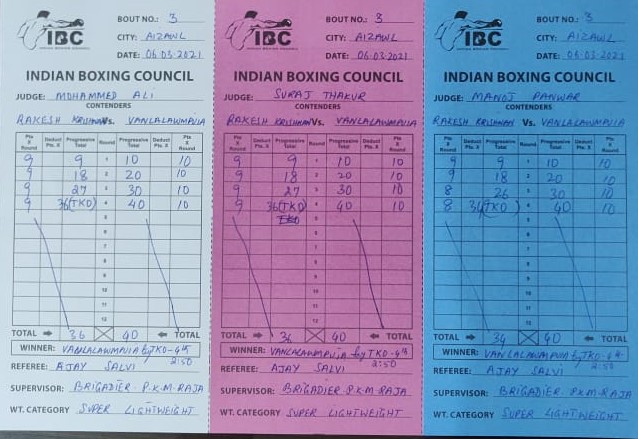 IBC
INDIAN BOXING COUNCIL
BOUT NO.: 3
CITY: AIZAWL
DATE: 06.03.2021
INDIAN BOXING COUNCIL
JUDGE: MOHAMMED ALI
CONTENDERS
RAKESH KRISHNAN Vs. VANLALAWMPUIA
Pts X Round Deduct Pts. X Progressive Total Round Progressive Total Deduct Pts. X Pts X Round
9 9 1 10 10
9 18 2 20 10
9 27 3 30 10
9 36(TKO) 4 40 10
5
6
7
8
9
10
11
12
TOTAL 36 40 TOTAL
WINNER: VANLALAWMPUIA by TKO-4th
2:50
REFEREE: AJAY SALVI
SUPERVISOR: BRIGADIER P.K.M. RAJA
WT. CATEGORY SUPER LIGHTWEIGHT
IBC
INDIAN BOXING COUNCIL
BOUT NO.: 3
CITY: AIZAWL
DATE: 06.03.2021
INDIAN BOXING COUNCIL
JUDGE: SURAJ THAKUR
CONTENDERS
RAKESH KRISHNAN Vs. VANLALAWMPUIA
Pts X Round Deduct Pts. X Progressive Total Round Progressive Total Deduct Pts. X Pts X Round
9 9 1 10 10
9 18 2 20 10
9 27 3 30 10
9 36(TKO) 4 40 10
TKO 5
6
7
8
9
10
11
12
TOTAL 36 40 TOTAL
WINNER: VANLALAWMPUIA by TKO-4th
2:50
REFEREE: AJAY SALVI
SUPERVISOR: BRIGADIER P.K.M RAJA
WT. CATEGORY SUPER LIGHTWEIGHT
IBC
INDIAN BOXING COUNCIL
BOUT NO.: 3
CITY: AIZAWL
DATE: 06.03.2021
INDIAN BOXING COUNCIL
JUDGE: MANOJ PANWAR
CONTENDERS
RAKESH KRISHNAN Vs. VANLALAWMPUIA
Pts X Round Deduct Pts. X Progressive Total Round Progressive Total Deduct Pts. X Pts X Round
9 9 1 10 10
9 18 2 20 10
8 26 3 30 10
8 34(TKO) 4 40 10
5
6
7
8
9
10
11
12
TOTAL 34 40 TOTAL
WINNER: VANLALAWMPUIA by TKO-4th
2:50
REFEREE: AJAY SALVI
SUPERVISOR: BRIGADIER P.K.M RAJA
WT. CATEGORY SUPER LIGHTWEIGHT